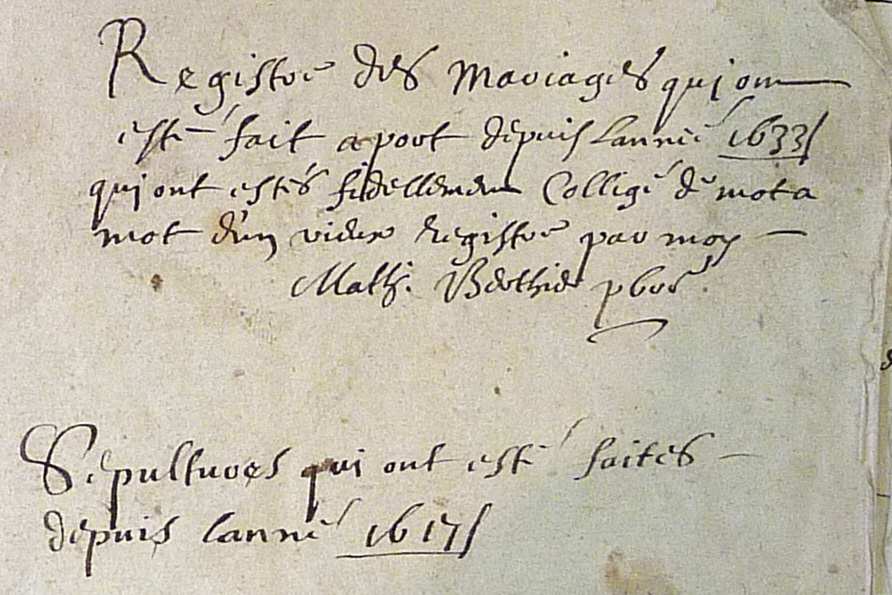 Registre des Mariages qui ont
esté fait a port depuis lanneé 1633
qui ont estés fidellement Colligé de mot a
mot d'un vieux Registre par moy
Math. Berthier pbre.
Sepultures qui ont esté faites
depuis lanneé 1617